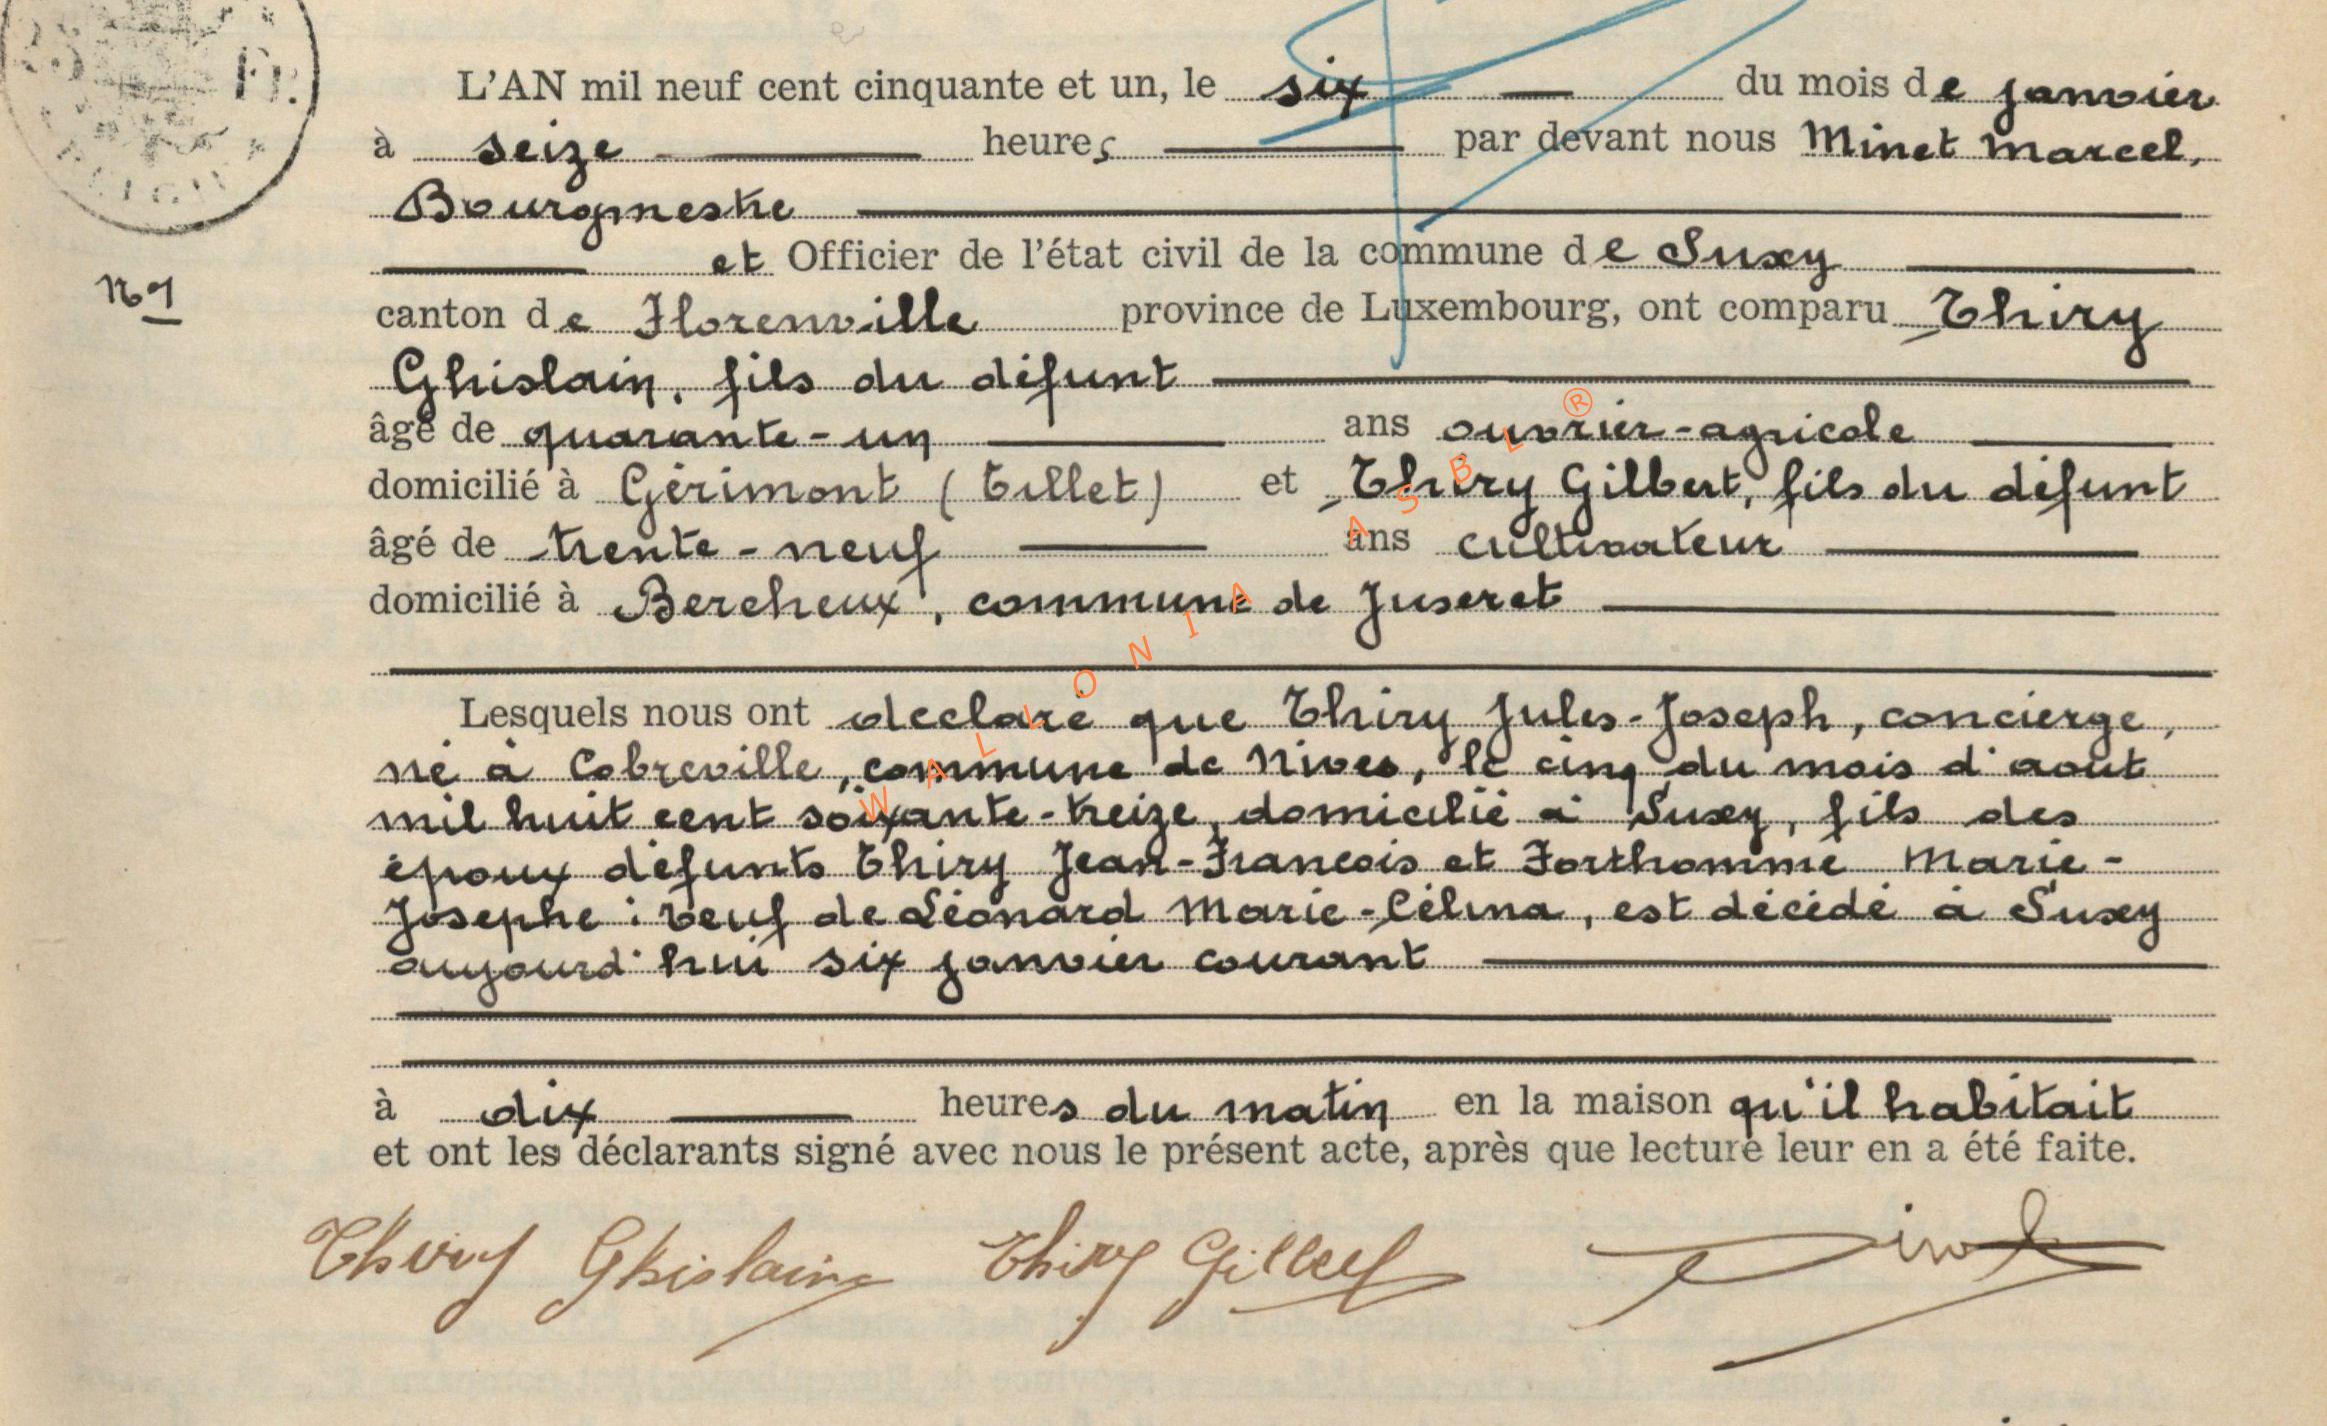 Fr.
L'AN mil neuf cent cinquante et un, le six du mois de janvier
à seize heures par devant nous Minet Marcel,
Bourgmestre
et Officier de l'état civil de la commune de Suxy
N°1
canton de Florenville province de Luxembourg, ont comparu Thiry
Ghislain, fils du défunt
âgé de quarante-un ans ouvrier-agricole
domicilié à Gérimont (Tillet) et Thiry Gilbert, fils du défunt
âgé de trente-neuf ans cultivateur
domicilié à Bercheux, commune de Juseret
Lesquels nous ont déclaré que Thiry Jules-Joseph, concierge,
né à Cobreville, commune de Nives, le cinq du mois d'août
mil huit cent soixante-treize, domicilié à Suxy, fils des
époux défunts Thiry Jean-Francois et Forthomme Marie-
Josephe: veuf de Léonard Marie-Célina, est décédé à Suxy
aujourd'hui six janvier courant
à dix heures du matin en la maison qu'il habitait
et ont les déclarants signé avec nous le présent acte, après que lecture leur en a été faite.
Thiry Ghislain Thiry Gilbert Minet
WALLONIA ASBL ®